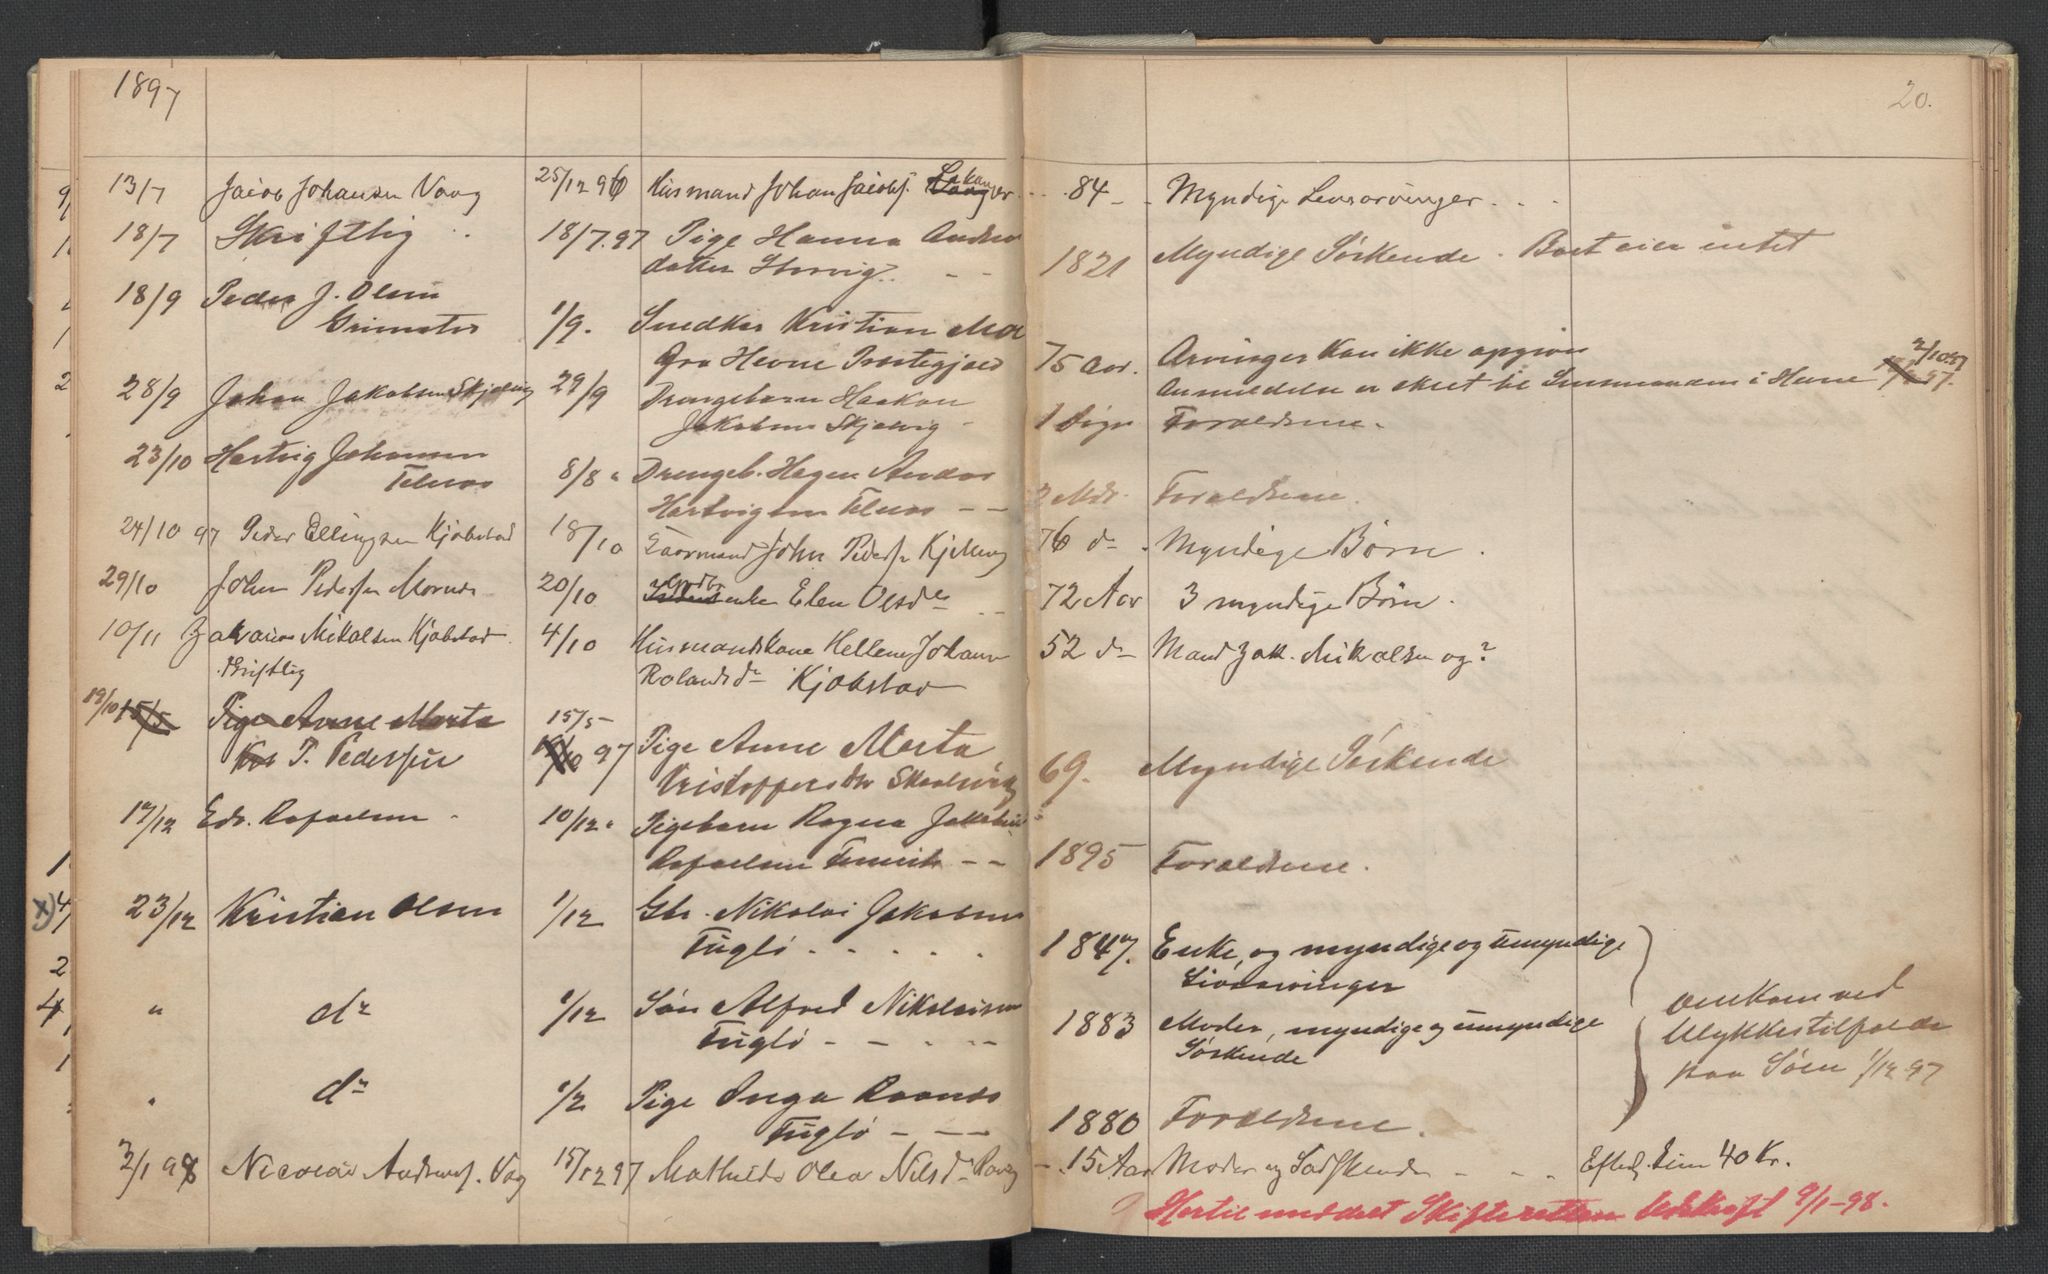 1897
20.
13/7 Jacob Johansen Vaag 25/12 96 Husmand Johan Jacobs. 84 Myndige Livsarvinger
18/7 Skriftlig 18/7.97 Pige Hanna Anders
datter 1821 Myndige Søskende. Boet eier intet
18/9 Peder J. Olsen
Grimstad 1/9. Snedker Kristian Moe
fra Hevne Præstegjæld 75 Aar. Arvinger kan ikke opgives
Anmeldelse er skeet til Lensmanden i Hevne 2/10.97
28/9 Johan Jakobsen Skjelvig 29/9 Drengebarn Haakon
Jakobsen Skjelvig 1 Døgn Forældrene.
23/10 Hartvig Johansen
Telnes 8/8 " Drengeb. Hagen Andor
Hartvigsen Telnes 2 Mdr. Forældrene.
24/10 97 Peder Ellingsen Kjøbstad 18/10 John Peders. 76 do Myndige Børn.
29/10 John Pedersen 20/10 enke Elen Olsdr 72 Aar 3 myndige Børn.
10/11 Zakarias Mikalsen Kjøbstad 4/10 Husmandskone Hellene Johanna
Skriftlig Rolandsdr Kjøbstad 52 do Mand Zak. Mikalsen og?
19/10 15/5 Pige Anne Marta 15/5
P. Pedersen 97 Pige Anne Marta
Kristoffersdtr 69. Myndige Søskende
17/12 Edv. Rafaelsen 10/12 " Pigebarn Ragna Jakobine
Rafaelsen 1895 Forældrene.
23/12 Kristian Olsen 1/12 Gbr. Nikolai Jakobsen
Fuglø 1847. Enke, og myndige og umyndige
Livsarvinger
" do 1/12 Søn Alfred Nikolaisen
Fuglø 1883 Moder, myndige og umyndige
Søskende
omkom ved
Ulykkestilfælde
paa Søen 1/12 97
" do 1/12 Pige Inga
Fuglø 1880 Forældrene.
3/1 98 Nicolai Anders. Vaag 15/12 97 Mathilde Olea Nilsdr Vaag 15 Aar Moder og Sødskende Efterl. Eien 40 Kr.
Hertil meddelt Skifteretten Udskrift 9/1-98.